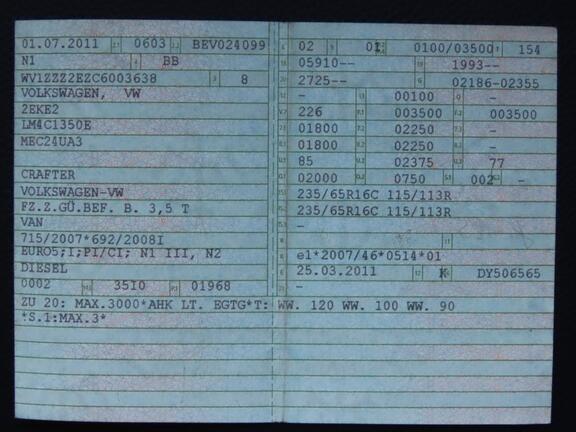 01.07.2011 0603 BEV024099
N1 BB
WV1ZZZ2EZC6003638 8
VOLKSWAGEN, VW
2EKE2
LM4C1350E
MEC24UA3
CRAFTER
VOLKSWAGEN-VW
FZ.Z.GÜ.BEF. B. 3,5 T
VAN
715/2007*692/2008I
EURO5;I;PI/CI; N1 III, N2
DIESEL
0002 35I0 01968
ZU 20: MAX.3000*AHK LT. EGTG*T: WW. 120 WW. 100 WW. 90
*S.1:MAX.3*
02 01 0100/03500 154
05910-- 1993--
2725-- 02186-02355
- 00100 -
226 003500 003500
01800 02250 -
01800 02250 -
85 02375 77
02000 0750 002 -
235/65R16C 115/113R
235/65R16C 115/113R
-
-
e1*2007/46*0514*01
25.03.2011 K DY506565
-